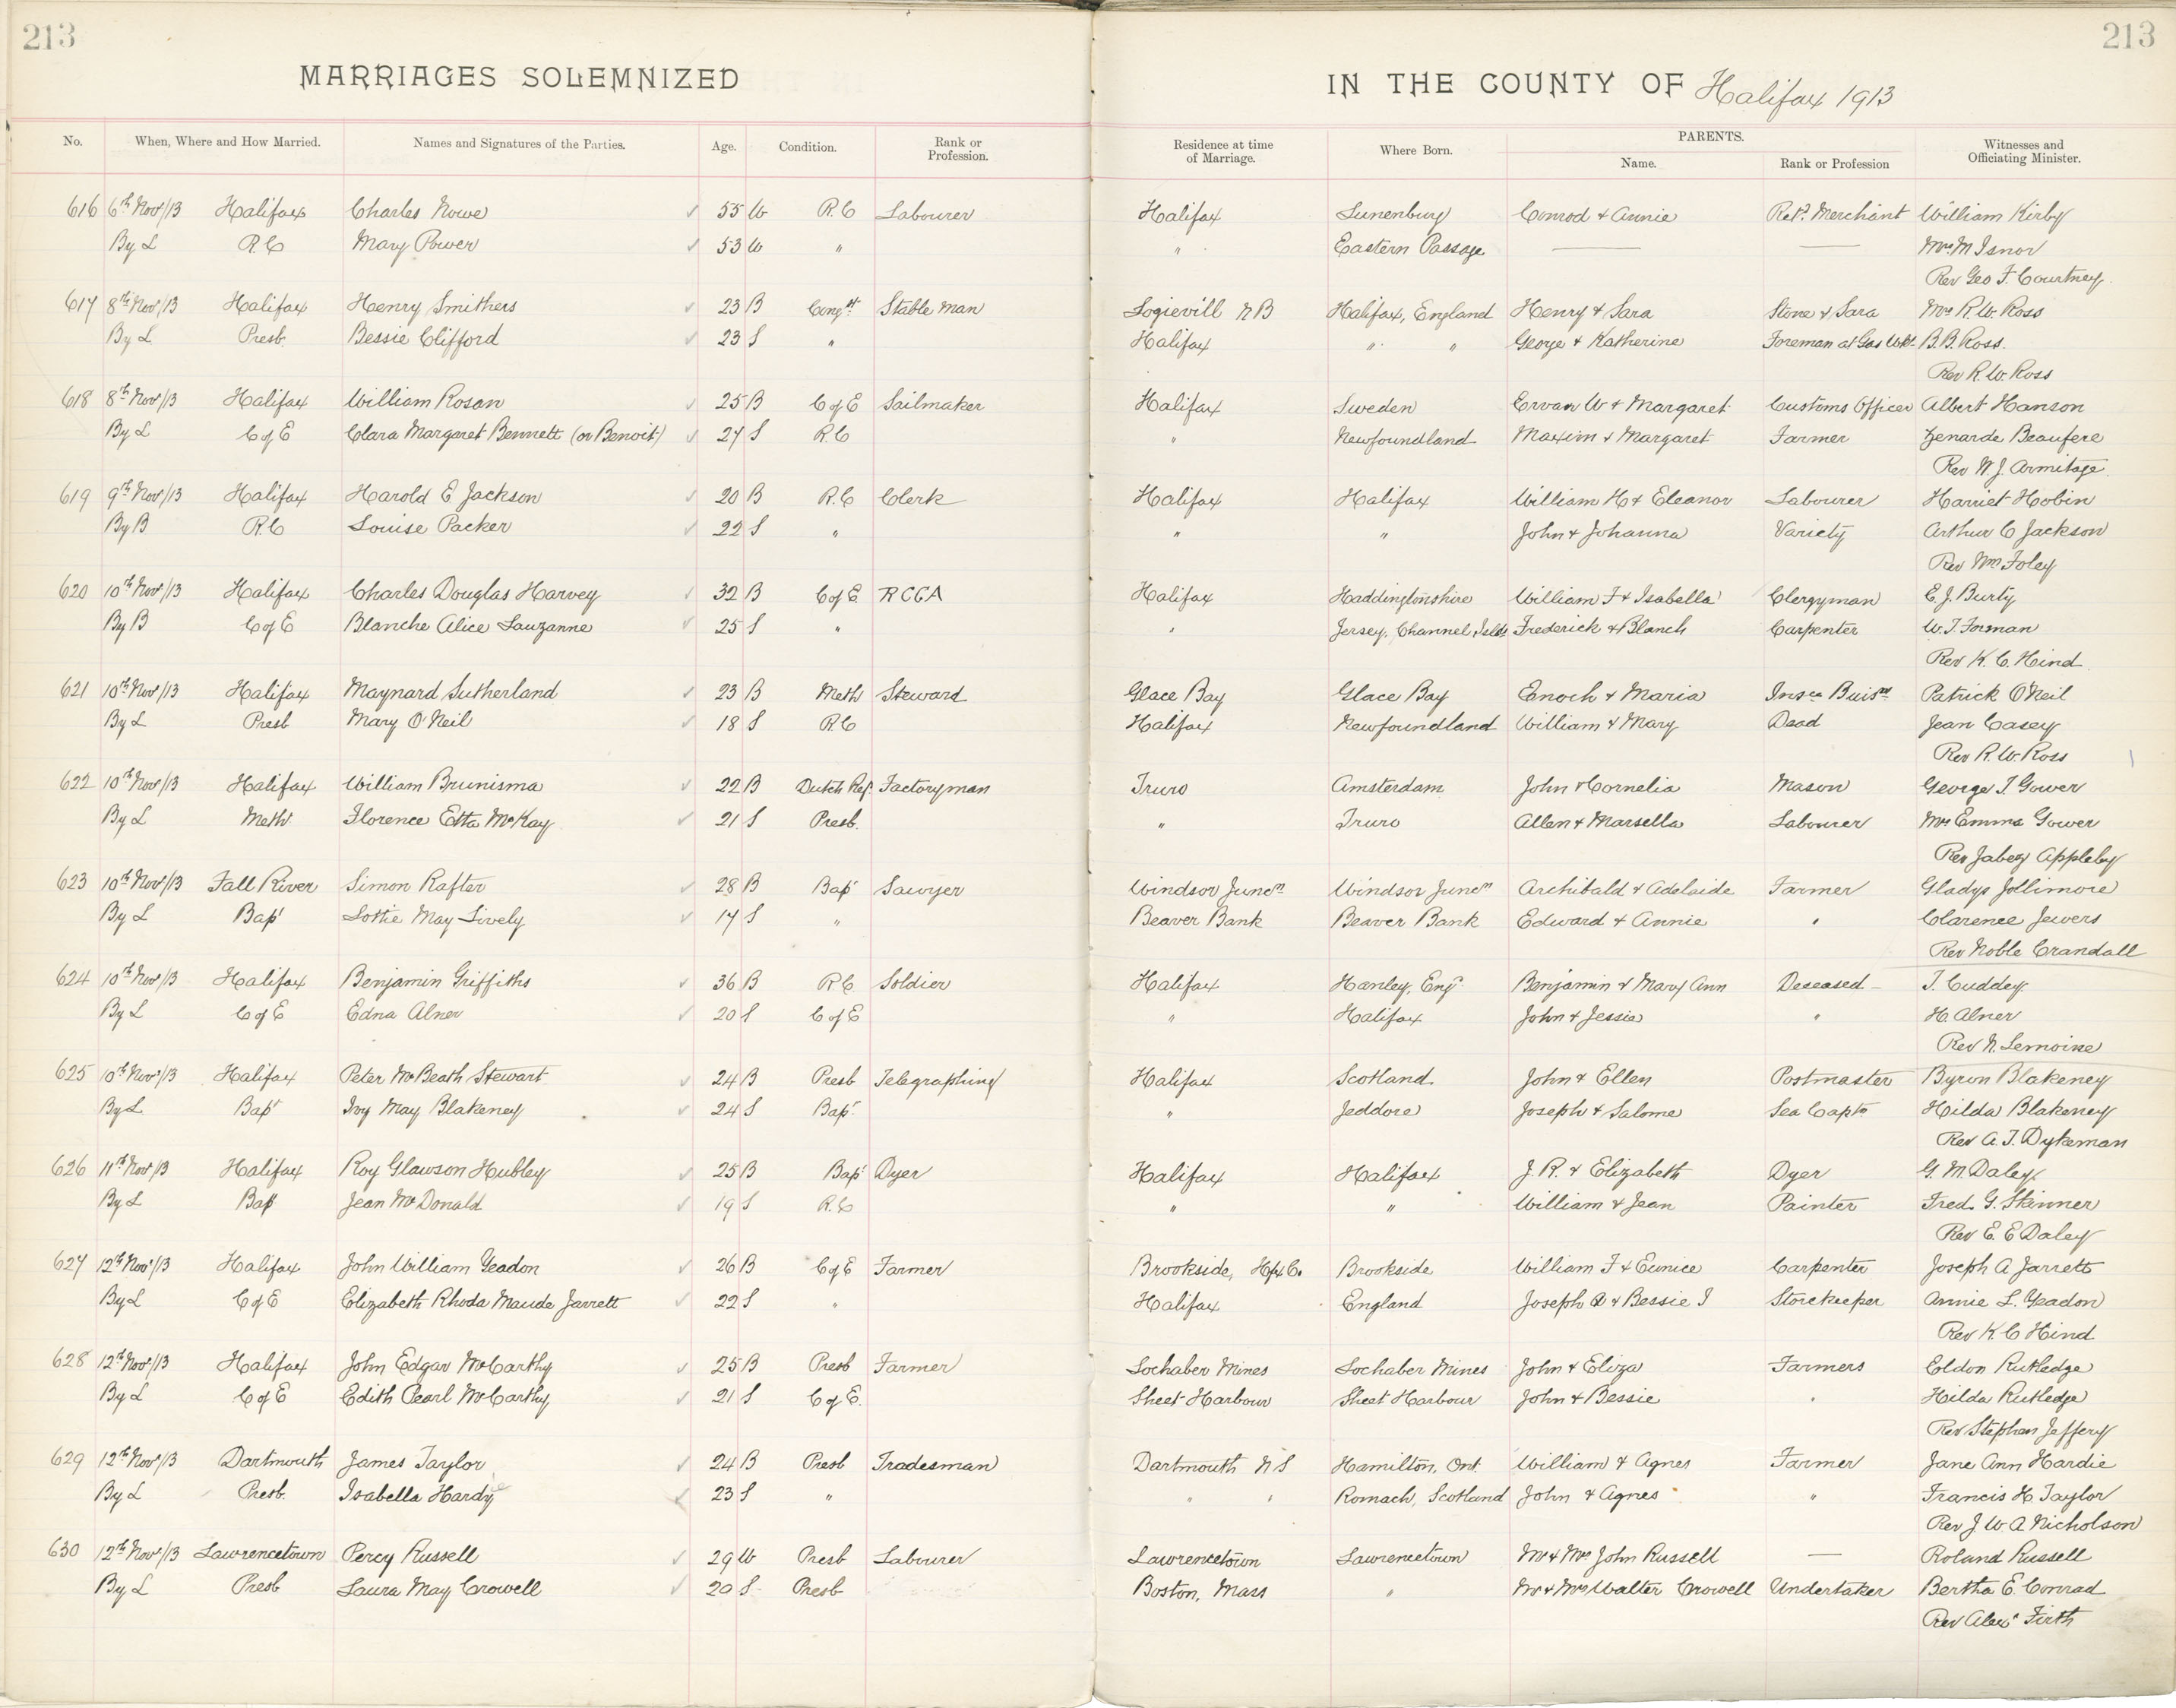 213 213
MARRIAGES SOLEMNIZED IN THE COUNTY OF Halifax 1913
PARENTS.
No. When, Where and How Married. Names and Signatures of the Parties. Age. Condition. Rank or Profession. Residence at time of Marriage. Where Born. Name. Rank or Profession Witnesses and Officiating Minister.
616 6th Nov/13 Halifax Charles Nowe ✓ 55 W R.C Labourer Halifax Lunenburg Conrod & Annie Retd. Merchant William Kirby
By L R.C Mary Power ✓ 53 W " " Eastern Passage — — Mrs M Isnor
Rev Geo F. Courtney.
617 8th Nov/13 Halifax Henry Smithers ✓ 23 B Congst Stable Man Logievill N B Halifax, England Henry & Sara Stone & Sara Mrs R.W. Ross
By L Presb. Bessie Clifford ✓ 23 S " Halifax " " George & Katherine Foreman at Gas Wks. B.B. Ross.
Rev R.W. Ross
618 8th Nov/13 Halifax William Rosan ✓ 25 B C of E Sailmaker Halifax Sweden Ervan W & Margaret Customs Officer Albert Hanson
By L C of E Clara Margaret Bennett (or Benoit) ✓ 27 S R.C " Newfoundland Maxim & Margaret Farmer Zenarde Beaufere
Rev W.J. Armitage.
619 9th Nov/13 Halifax Harold E Jackson ✓ 20 B R.C Clerk Halifax Halifax William H & Eleanor Labourer Harriet Hobin
By B R.C Louise Packer ✓ 22 S " " " John & Johanna Variety Arthur C Jackson
Rev Wm Foley
620 10th Nov/13 Halifax Charles Douglas Harvey ✓ 32 B C of E R C G A Halifax Haddingtonshire William F & Isabella Clergyman E.J. Burty
By B C of E Blanche Alice Lauzanne ✓ 25 S " " Jersey, Channel Islds Frederick & Blanch Carpenter W.T. Forman
Rev K.C. Hind.
621 10th Nov/13 Halifax Maynard Sutherland ✓ 23 B Meth Steward Glace Bay Glace Bay Enoch & Maria Insce Buisns Patrick O'Neil
By L Presb Mary O'Neil ✓ 18 S R.C Halifax Newfoundland William & Mary Dead Jean Casey
Rev R.W. Ross
622 10th Nov/13 Halifax William Brunisma ✓ 22 B Dutch Ref. Factoryman Truro Amsterdam John & Cornelia Mason George T. Gower
By L Meth. Florence Etta McKay ✓ 21 S Presb. " Truro Allen & Marsella Labourer Mrs Emma Gower
Rev Jabez Appleby
623 10th Nov/13 Fall River Simon Rafter ✓ 28 B Bapt Sawyer Windsor Juncn Windsor Juncn Archibald & Adelaide Farmer Gladys Jollimore
By L Bapt Lottie May Lively ✓ 17 S " Beaver Bank Beaver Bank Edward & Annie " Clarence Jewers
Rev Noble Crandall
624 10th Nov/13 Halifax Benjamin Griffiths ✓ 36 B R.C Soldier Halifax Hanley, Eng. Benjamin & Mary Ann Deceased T. Cuddey
By L C of E Edna Alner ✓ 20 S C of E " Halifax John & Jessie " H. Alner
Rev N. Lemoine
625 10th Nov/13 Halifax Peter McBeath Stewart ✓ 24 B Presb Telegraphing Halifax Scotland John & Ellen Postmaster Byron Blakeney
By L Bapt Ivy May Blakeney ✓ 24 S Bapt. " Jeddore Joseph & Salome Sea Captn Hilda Blakeney
Rev A.J. Dykeman
626 11th Nov/13 Halifax Roy Glawson Hubley ✓ 25 B Bapt Dyer Halifax Halifax J.R. & Elizabeth Dyer G.M. Daley
By L Bapt Jean McDonald ✓ 19 S R.C " " William & Jean Painter Fred. G. Skinner
Rev E.E Daley
627 12th Nov/13 Halifax John William Yeadon ✓ 26 B C of E Farmer Brookside, Hfx Co. Brookside William F & Eunice Carpenter Joseph A Jarrett
By L C of E Elizabeth Rhoda Maude Jarrett ✓ 22 S " Halifax England Joseph A & Bessie I Storekeeper Annie L. Yeadon
Rev K.C Hind
628 12th Nov/13 Halifax John Edgar McCarthy ✓ 25 B Presb Farmer Lochaber Mines Lochaber Mines John & Eliza Farmers Eoldon Rutledge
By L C of E Edith Pearl McCarthy ✓ 21 S C of E. Sheet Harbour Sheet Harbour John & Bessie " Hilda Rutledge
Rev Stephen Jeffery
629 12th Nov/13 Dartmouth James Taylor ✓ 24 B Presb Tradesman Dartmouth N S Hamilton, Ont. William & Agnes Farmer Jane Ann Hardie
By L Presb. Isabella Hardy ✓ 23 S " " " Romach, Scotland John & Agnes " Francis H Taylor
Rev J W A Nicholson
630 12th Nov/13 Lawrencetown Percy Russell ✓ 29 W Presb Labourer Lawrencetown Lawrencetown Mr & Mrs John Russell — Roland Russell
By L Presb Laura May Crowell ✓ 20 S. Presb Boston, Mass " Mr & Mrs Walter Crowell Undertaker Bertha E. Conrad
Rev Alexr Firth